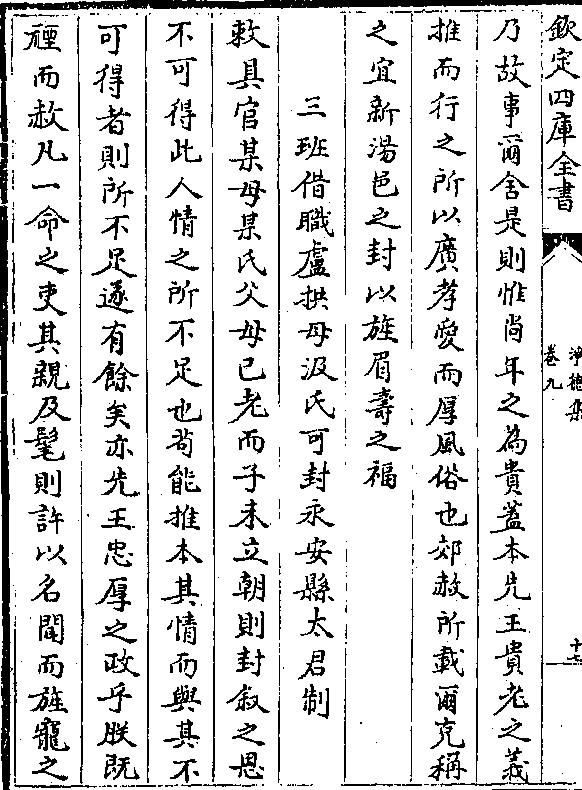 欽定四庫全書
淨德集
卷九
十七
乃故事爾舍是則惟尚年之為貴蓋本先王貴老之義
推而行之所以廣孝愛而厚風俗也郊赦所載爾克稱
之宜新湯邑之封以旌眉壽之福
三班借職盧拱母汲氏可封永安縣太君制
敕具官某母某氏父母已老而子未立朝則封敘之恩
不可得此人情之所不足也茍能推本其情而與其不
可得者則所不足遂有餘矣亦先王忠厚之政乎朕既
禋而赦凡一命之吏其親及髦則許以名聞而旌寵之